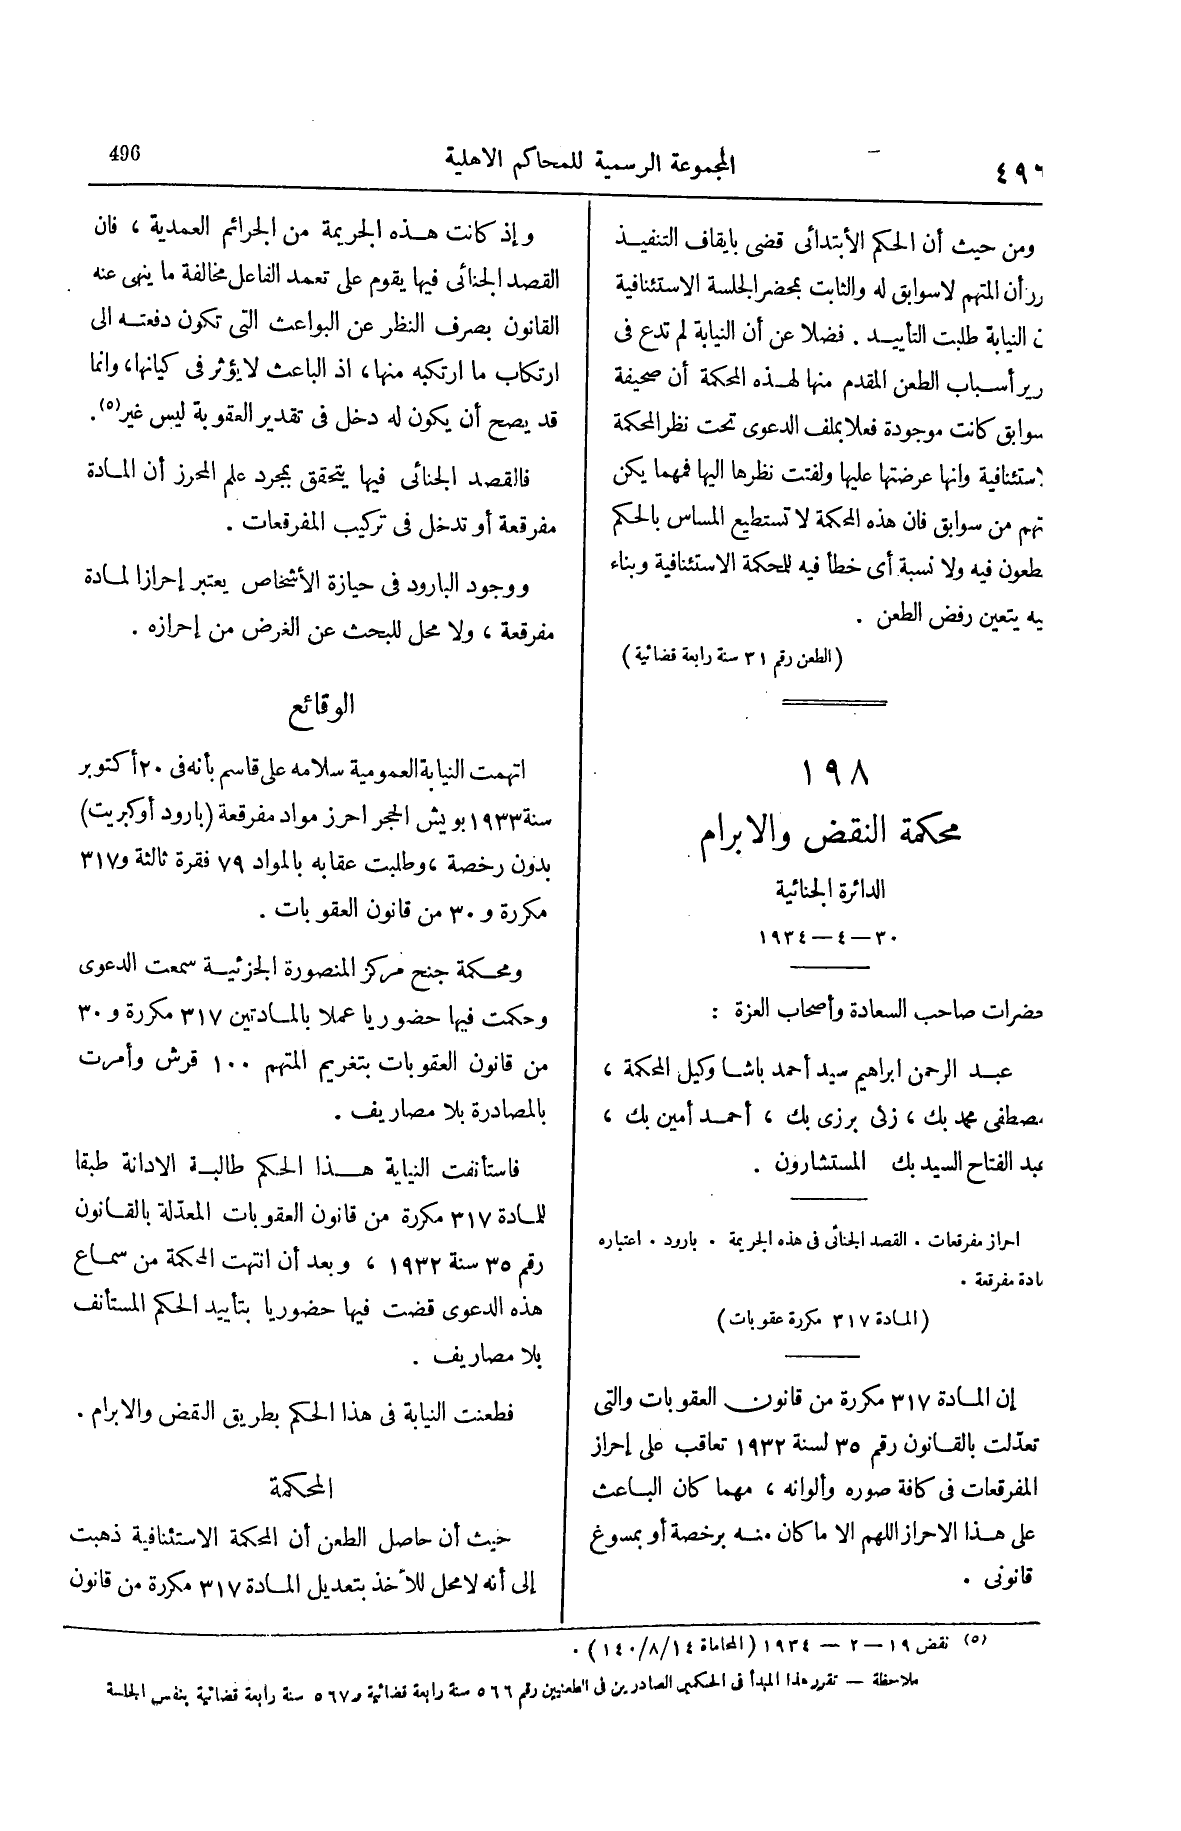 ٤٩٦
المجموعة الرسمية للمحاكم الاهلية
496
ومن حيث أن الحكم الأبتدائى قضى بايقاف التنفيذ
أن المتهم لاسوابق له والثابت بمحضر الجلسة الاستئنافية
النيابة طلبت التأييد . فضلا عن أن النيابة لم تدع فى
أسباب الطعن المقدم منها لهذه المحكمة أن صحيفة
سوابق كانت موجودة فعلا بملف الدعوى تحت نظر المحكمة
ستئنافية وانها عرضتها عليها ولفتت نظرها اليها فمهما يكن
تهم من سوابق فان هذه المحكمة لا تستطيع المساس بالحكم
طعون فيه ولا نسبة أى خطأ فيه للمحكمة الاستئنافية وبناء
يه يتعين رفض الطعن .
(الطعن رقم ٣١ سنة رابعة قضائية)
١٩٨
محكمة النقض والابرام
الدائرة الجنائية
٣٠ — ٤ — ١٩٣٤
حضرات صاحب السعادة وأصحاب العزة :
عبد الرحمن ابراهيم سيد أحمد باشا وكيل المحكمة ،
مصطفى محمد بك ، زكى برزى بك ، أحمد أمين بك ،
عبد الفتاح السيد بك المستشارون .
احراز مفرقعات . القصد الجنائى فى هذه الجريمة . بارود . اعتباره
ادة مفرقعة .
(المادة ٣١٧ مكررة عقوبات)
إن المادة ٣١٧ مكررة من قانون العقوبات والتى
تعدّلت بالقانون رقم ٣٥ لسنة ١٩٣٢ تعاقب على إحراز
المفرقعات فى كافة صوره وألوانه ، مهما كان الباعث
على هذا الاحراز اللهم الا ما كان منه برخصة أو بمسوغ
قانونى .
وإذ كانت هذه الجريمة من الجرائم العمدية ، فان
القصد الجنائى فيها يقوم على تعمد الفاعل مخالفة ما ينهى عنه
القانون بصرف النظر عن البواعث التى تكون دفعته الى
ارتكاب ما ارتكبه منها، اذ الباعث لا يؤثر فى كيانها، وانما
قد يصح أن يكون له دخل فى تقدير العقوبة ليس غير(٥).
فالقصد الجنائى فيها يتحقق بمجرد علم المحرز أن المادة
مفرقعة أو تدخل فى تركيب المفرقعات .
ووجود البارود فى حيازة الأشخاص يعتبر إحرازا لمادة
مفرقعة ، ولا محل للبحث عن الغرض من إحرازه .
الوقائع
اتهمت النيابة العمومية سلامه على قاسم بأنه فى ٢٠ أكتوبر
سنة ١٩٣٣ بويش الحجر احرز مواد مفرقعة (بارود أوكبريت)
بدون رخصة ، وطلبت عقابه بالمواد ٧٩ فقرة ثالثة و٣١٧
مكررة و ٣٠ من قانون العقوبات .
ومحكمة جنح مركز المنصورة الجزئية سمعت الدعوى
وحكمت فيها حضوريا عملا بالمادتين ٣١٧ مكررة و ٣٠
من قانون العقوبات بتغريم المتهم ١٠٠ قرش وأمرت
بالمصادرة بلا مصاريف .
فاستأنفت النيابة هذا الحكم طالبة الادانة طبقا
للمادة ٣١٧ مكررة من قانون العقوبات المعدّلة بالقانون
رقم ٣٥ سنة ١٩٣٢ ، وبعد أن انتهت المحكمة من سماع
هذه الدعوى قضت فيها حضوريا بتأييد الحكم المستأنف
بلا مصاريف .
فطعنت النيابة فى هذا الحكم بطريق النقض والابرام .
المحكمة
حيث أن حاصل الطعن أن المحكمة الاستئنافية ذهبت
إلى أنه لا محل للأخذ بتعديل المادة ٣١٧ مكررة من قانون
(٥) نقض ١٩ — ٢ — ١٩٣٤ (المحاماة ١٤٠/٨/١٤) .
ملاحظة — تقرر هذا المبدأ فى الحكمين الصادرين فى الطعنيين رقم ٥٦٦ سنة رابعة قضائية و٥٦٧ سنة رابعة قضائية بنفس الجلسة